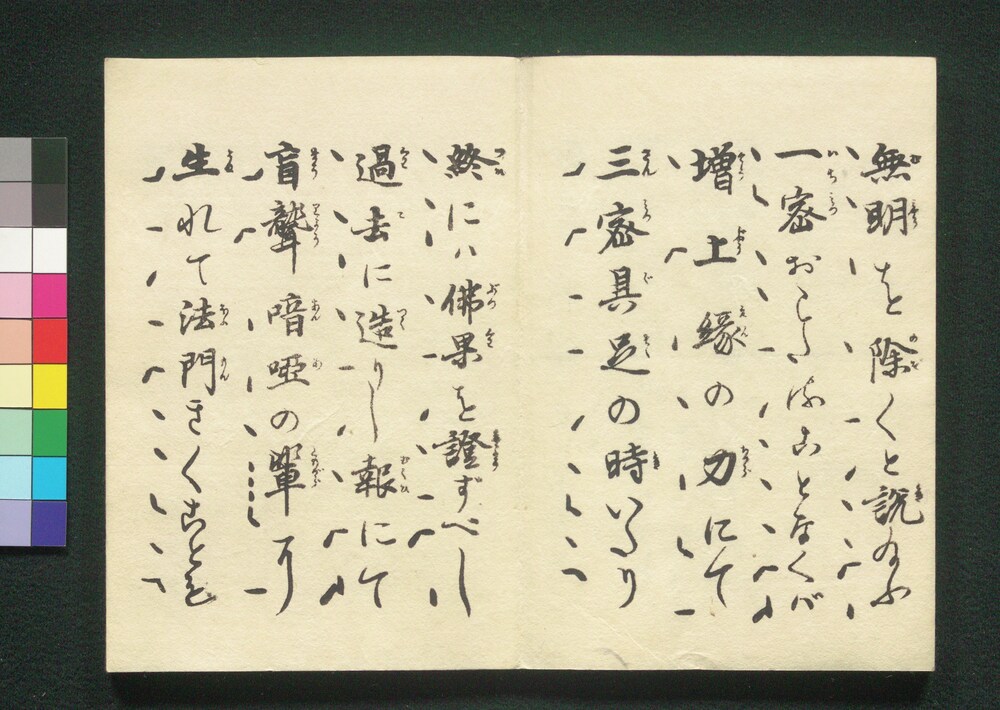 無明を除くと説給ふ
一密おこたることなくバ
増上縁の力にて
三密具足の時いたり
終にハ佛果を證ずべし
過去に造りし報にて
盲聾喑啞の輩
生れて法門きくことを